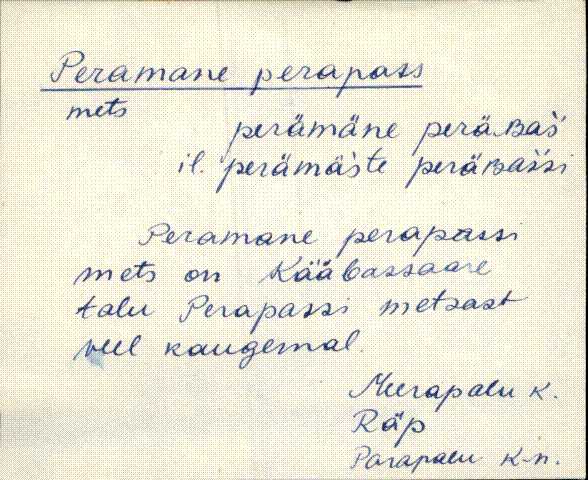 Peramane perapass
mets
perämäne peräʙaš
il. perämäšte peräʙašši
Peramane perapassi
mets on Kääbassaare
talu Perapassi metsast
veel kaugemal.
Meerapalu k.
Räp
Parapalu k-n.